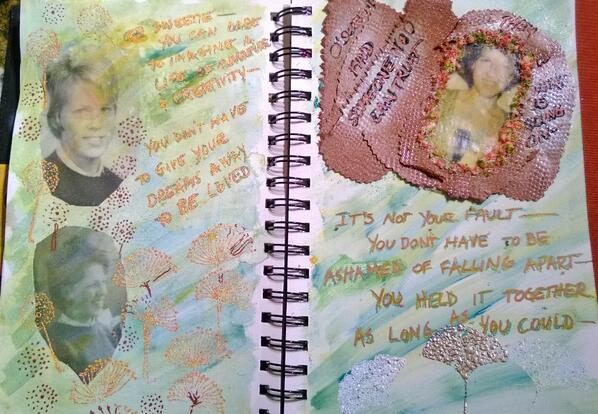 SWEETIE —
YOU CAN LEARN
TO IMAGINE A
LIFE OF SUNSHINE
& CREATIVITY —
YOU DON'T HAVE
TO GIVE YOUR
DREAMS AWAY
TO BE LOVED
FIND
SOMEONE YOU
CAN TRUST
IT'S NOT YOUR FAULT —
YOU DON'T HAVE TO BE
ASHAMED OF FALLING APART —
YOU HELD IT TOGETHER
AS LONG AS YOU COULD —